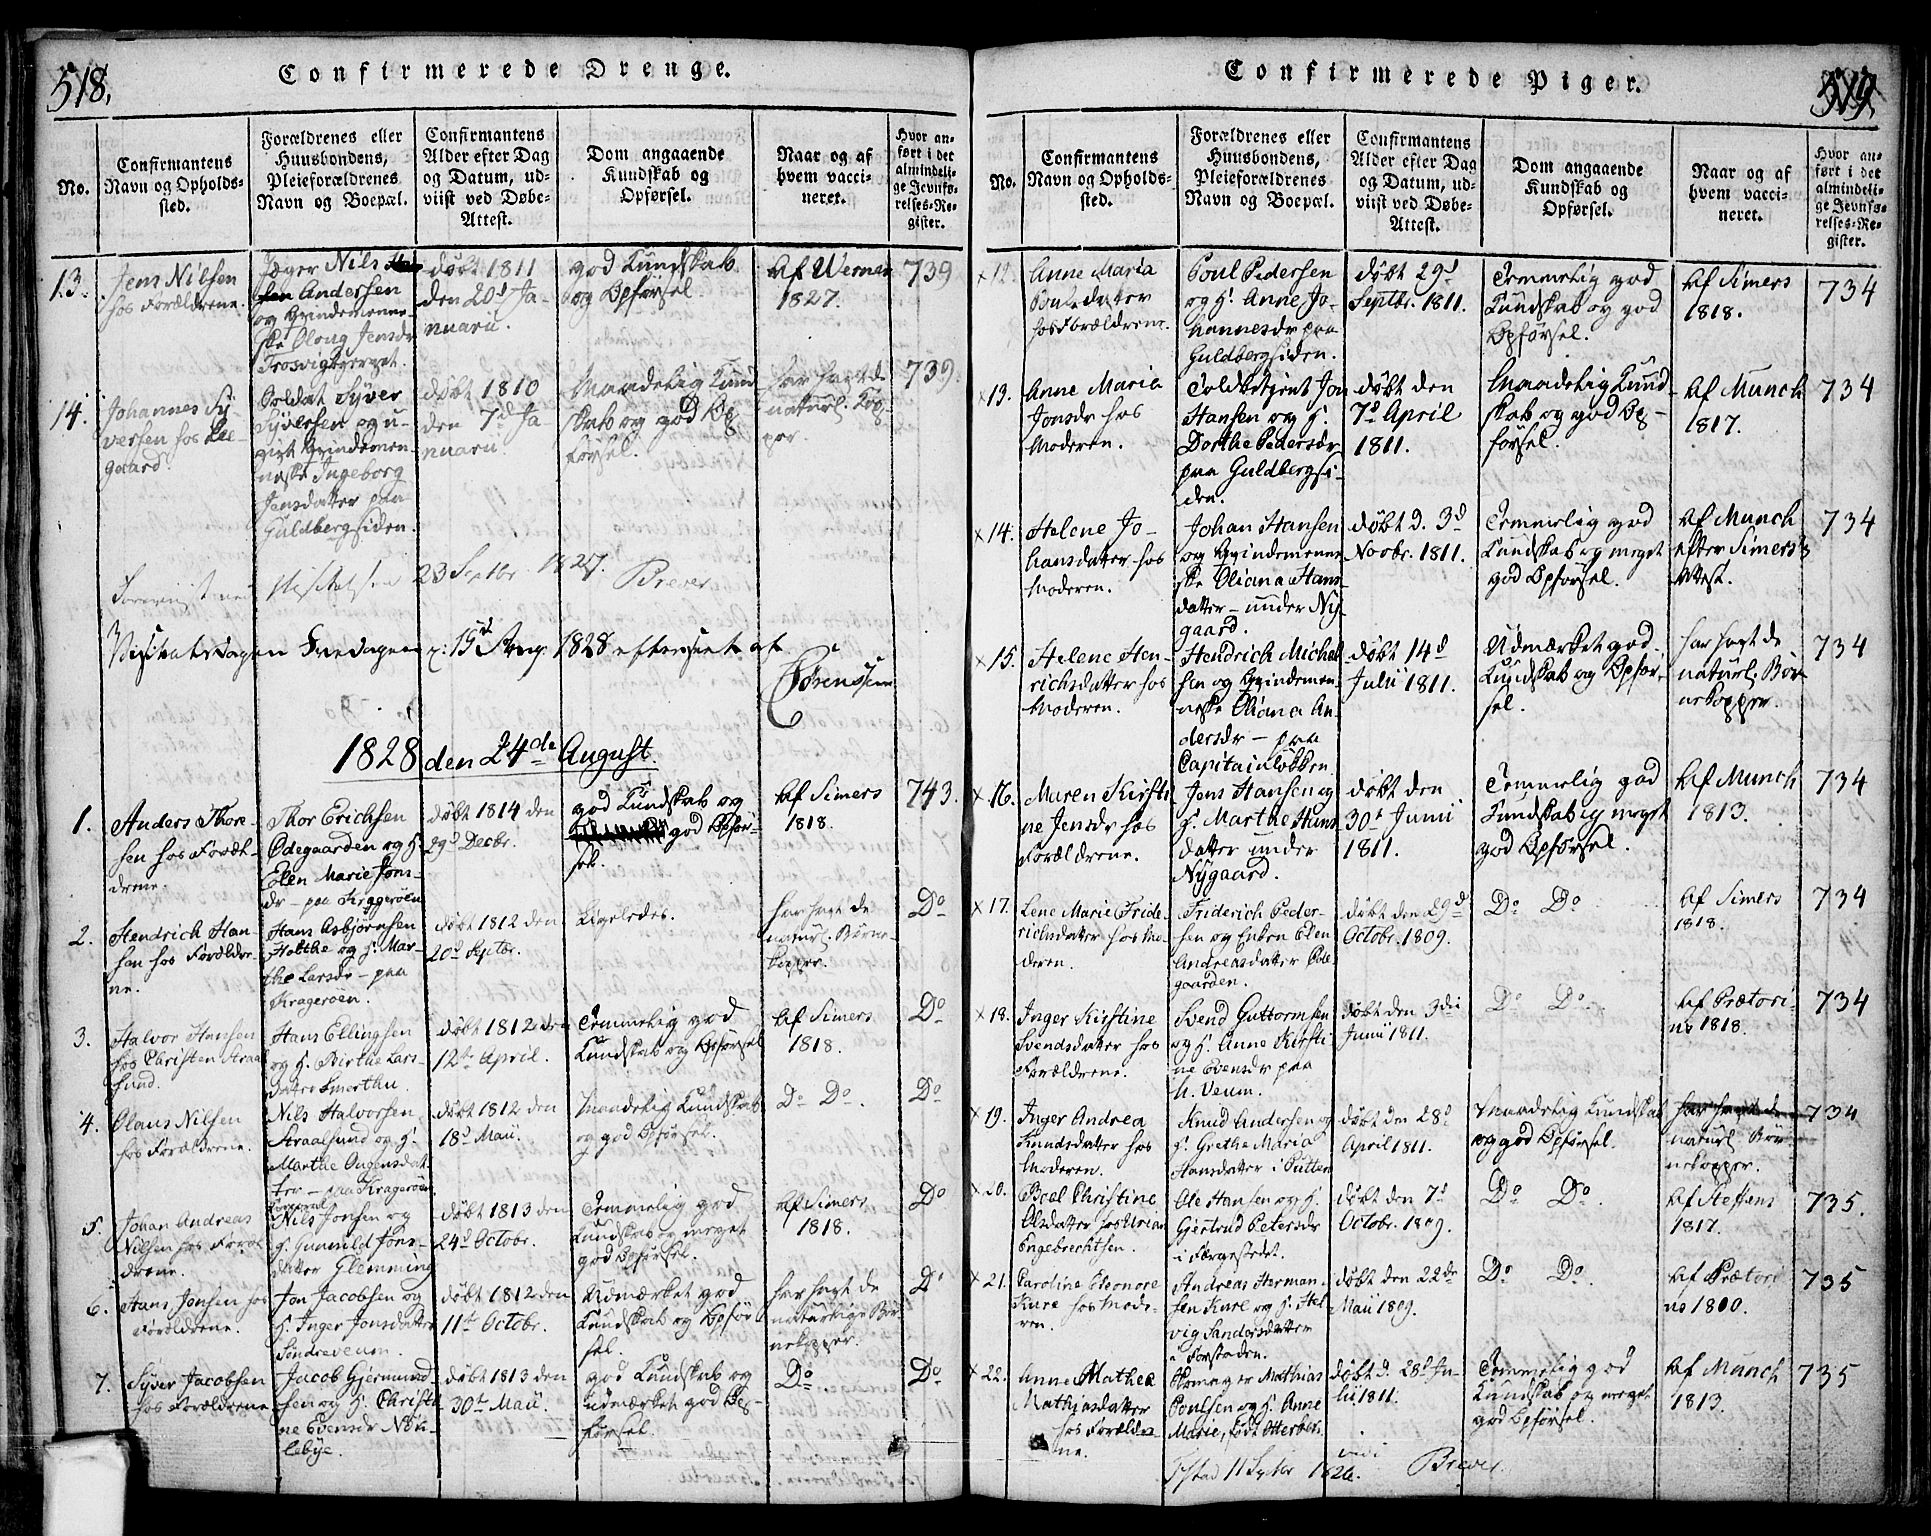 518.
Confirmerede Drenge.
No.
Confirmantens
Navn og Opholds-
sted.
Forældrenes eller
Huusbondens,
Pleieforældrenes
Navn og Boepæl.
Confirmantens
Alder efter Dag
og Datum, ud-
viist ved Døbe-
Attest.
Dom angaaende
Kundskab og
Opførsel.
Naar og af
hvem vacci-
neret.
Hvor an-
ført i det
almindeli-
ge Jevnfø-
relses-Re-
gister.
13.
Jens Nilsen
hos Forældrene.
Jæger Nils
Andersen
og Qvindemenne-
ske Oloug Jensdr
Trosvigbjerget.
døbt 1811
den 20d Ja-
nuarii.
god Kundskab
og Opførsel.
Af Werner
1827.
739
14.
Johannes Sy-
versen hos Lie-
gaard.
Soldat Syver
Syversen og u-
givt Qvindemen-
neske Ingeborg
Jensdatter paa
Guldbergsiden.
døbt 1810
den 7d Ja-
nuarii.
Maadelig Kund-
skab og god Op-
førsel.
har havt de
naturl. Kop-
per.
739.
23 Septbr. 1827. Brever
Visitatsdagen Fredagen d: 15d Aug. 1828 efterseet af
Sørenssen
1828 den 24de August.
1.
Anders Thor-
sen hos Foræl-
drene.
Thor Erichsen
Ødegaarden og H.
Elen Marie Jons-
dr – paa Kragerøen
døbt 1814 den
29d Decbr.
god Kundskab og
god Opfør-
sel.
Af Simers
1818.
743.
2.
Hendrich Han-
sen hos Forældre-
ne.
Hans Asbjørnsen
Holthe og H. Mar-
the Larsdr – paa
Kragerøen.
døbt 1812 den
20d Septbr.
Ligeledes.
har havt de
naturl. Børne-
kopper.
Do
3.
Halvor Hansen
hos Christen Straal-
sund.
Hans Ellingsen
og H. Birthe Lars-
datter Smerthu.
døbt 1812 den
12te April.
Temmelig god
Kundskab og Opførsel
Af Simers
1818.
Do
4.
Olaus Nilsen
hos Forældrene.
Nils Halvorsen
Straalsund og H.
Marthe Ougensdat-
ter – paa Kragerøen
døbt 1812 den
18d Maii.
Maadelig Kundskab
og god Opførsel.
Do Do.
Do
5.
Johan Andreas
Nilsen hos Foræl-
drene.
Nils Jonsen og
H. Gunnild Jons-
datter Glemming
døbt 1813 den
24d Octobr.
Temmelig god
Kundskab og meget
god Opførsel.
Af Simers
1818.
Do
6.
Hans Jonsen hos
Forældrene.
Jon Jacobsen og
H. Inger Jonsdatter
Sondreveum.
døbt 1812 den
11te Octobr.
Udmærket god
Kundskab og Opfør-
sel.
har havt de
naturlige Bør-
nekopper.
Do
7.
Syver Jacobsen
hos Forældrene
Jacob Gjermund-
sen og H. Christi-
ne Evensdr Nøk-
lebye.
døbt 1813 den
30te Maii.
god Kundskab og
udmærket god Op-
førsel.
Do
Do
519.
Confirmerede Piger.
No.
Confirmantens
Navn og Opholds-
sted.
Forældrenes eller
Huusbondens,
Pleieforældrenes
Navn og Boepæl.
Confirmantens
Alder efter Dag
og Datum, ud-
viist ved Døbe-
Attest.
Dom angaaende
Kundskab og
Opførsel.
Naar og af
hvem vacci-
neret.
Hvor an-
ført i det
almindeli-
ge Jevnfø-
relses-Re-
gister.
x 12.
Anne Maria
Poulsdatter
hos Forældrene.
Poul Pedersen
og H. Anne Jo-
hannesdr paa
Guldbergsiden.
døbt 29d
Septbr. 1811.
Temmelig god
Kundskab og god
Opførsel.
Af Simers
1818.
734
x 13.
Anne Maria
Jonsdr hos
Moderen.
Toldbetjent Jon
Hansen og H.
Dorthe Pedersdr
paa Guldbergsi-
den.
døbt den
7d April
1811.
Maadelig Kund-
skab og god Op-
førsel.
Af Munch
1817.
734
x 14.
Helene Jo-
hansdatter hos
Moderen.
Johan Hansen
og Qvindemenne-
ske Oliana Hans-
datter – under Ny-
gaard.
døbt d. 3d
Novbr. 1811.
Temmelig god
Kundskab og meget
god Opførsel.
Af Munch
efter Simers's
Attest.
734
x 15.
Helene Hen-
richsdatter hos
Moderen.
Hendrich Michel-
sen og Qvindemen-
neske Oliana An-
dersdr – paa
Capitainløkken.
døbt 14d
Julii 1811.
Udmærket god
Kundskab og Opfør-
sel.
har havt de
naturl. Bør-
nekopper.
734
x 16.
Maren Kirsti-
ne Jensdr hos
Forældrene.
Jens Hansen og
H. Marthe Hans-
datter under
Nygaard.
døbt den
30te Junii
1811.
Temmelig god
Kundskab og meget
god Opførsel.
Af Munch
1813.
734
x 17.
Lene Marie Fride-
richsdatter hos Mo-
deren.
Friderich Peder-
sen og Enken Elen
Andreasdatter Øde-
gaarden.
døbt den 29d
Octobr. 1809.
Do Do
Af Simers
1818.
734
x 18.
Inger Kirstine
Svendsdatter hos
Forældrene.
Svend Guttormsen
og H. Anne Kirsti-
ne Evensdr paa
N. Veum.
døbt den 3die
Junii 1811.
Do Do
Af Prætori-
us 1818.
734
x 19.
Inger Andrea
Knudsdatter hos
Moderen.
Knud Andersen og
H. Grethe Maria
Hansdatter i Putten
døbt den 28d
April 1811.
Maadelig Kundskab
og god Opførsel.
har havt de
naturl. Bør-
nekopper.
734
x 20.
Boel Christine
Olsdatter hos Urian
Engebrechtsen.
Ole Hansen og H.
Gjertrud Petersdr
i Færgestedet.
døbt den 7d
Octobr. 1809.
Do Do.
Af Steffens
1817.
735.
x 21.
Caroline Eleonore
Kure hos Mode-
ren.
Andreas Herman-
sen Kure og H. Hel-
vig Sandersdatter
i Forstaden.
døbt den 22de
Maii 1809.
Do Do.
Af Prætori-
us 1810.
735
x 22.
Anne Mathea
Mathiasdatter
hos Forældre-
ne.
Skomager Mathias
Poulsen og H. Anne
Marie, født Otterbek.
døbt d. 28d Ju-
lii 1811.
Temmelig god
Kundskab og meget
god Opførsel.
Af Munch
1813.
735
11 Septbr 1826. Brever.